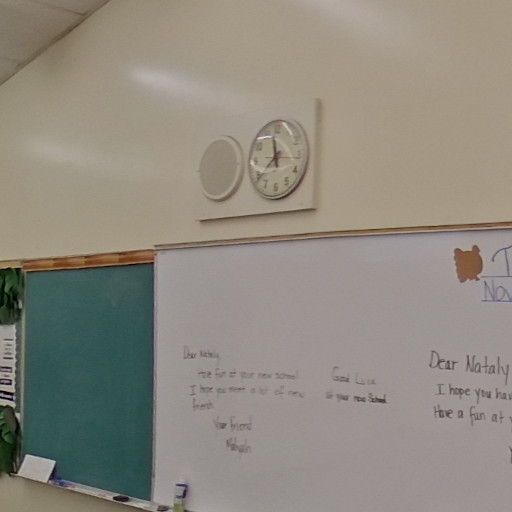 Dear Nataly,
Have fun at your new school
I hope you meet a lot of new
friends
Your friend
Good
at your new School
T
Nov
Dear Nataly
I hope you hav
Have a fun at y